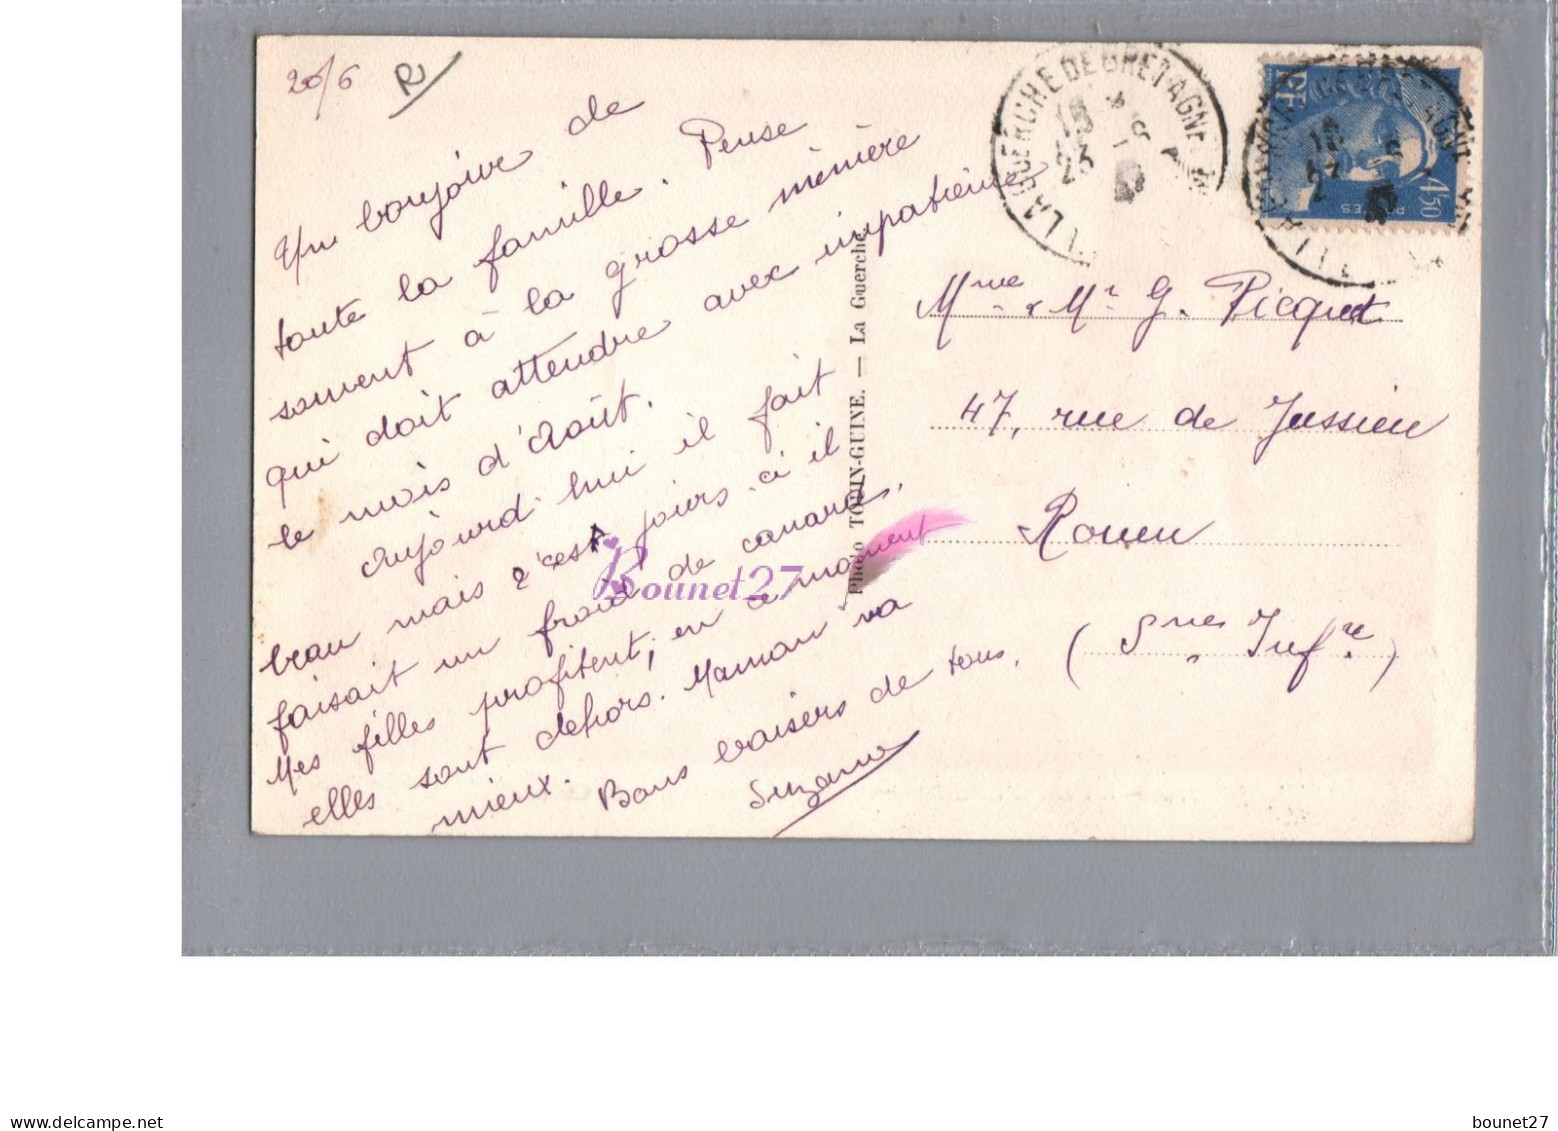 20/6
R
Un bonjour de
toute la famille. Pense
souvent à la grosse mémère
qui doit attendre avec impatience
le mois d'Août.
Aujourd'hui il fait
beau mais 2 jours ci il
faisait un froid de canard.
Mes filles profitent, en ce moment
elles sont dehors. Maman va
mieux.
Bons baisers de tous.
Suzanne
Photo TODIN-GUINE. — La Guerche
LA GUERCHE DE BRETAGNE
18
23
RF
POSTES
4F50
Mme & Mr G. Picquet
47, rue de Jussieu
Rouen
(Sne Infre)
Bounet27
delcampe.net
bounet27